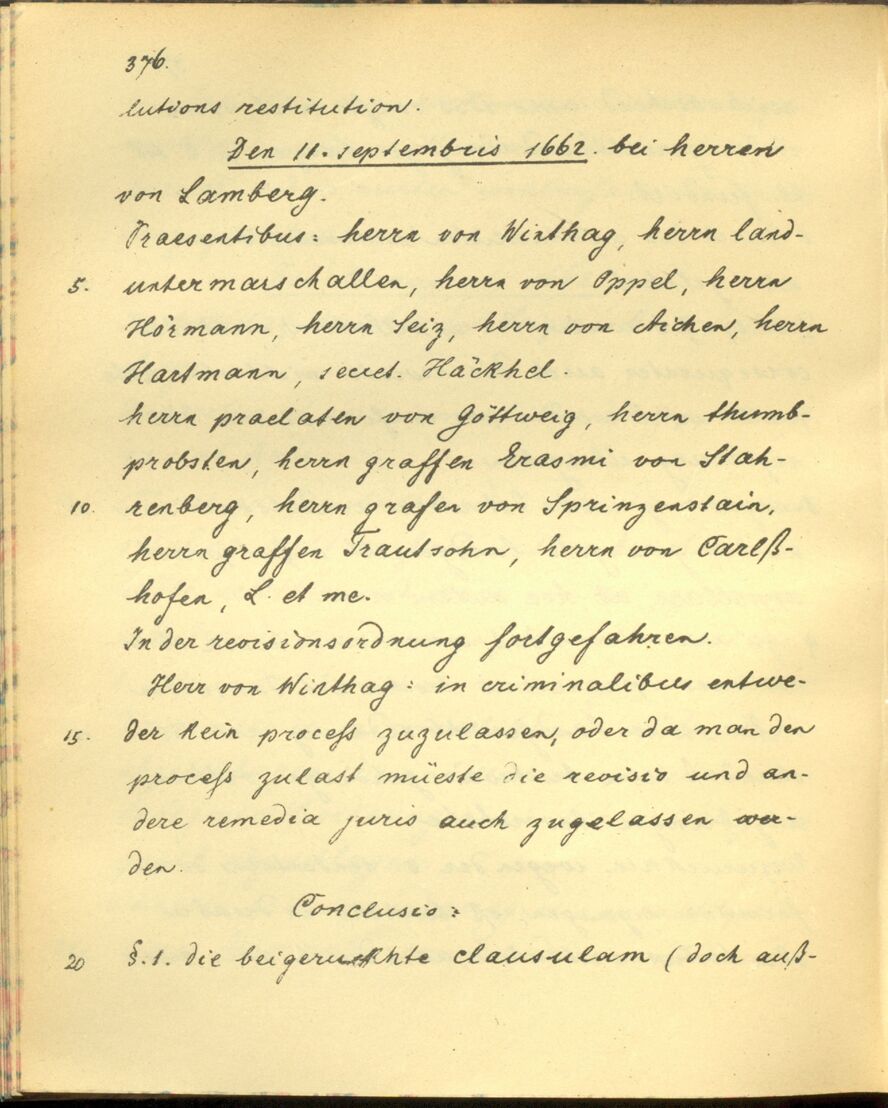 376.
lutions restitution.
Den 11. septembris 1662. bei herren
von Lamberg.
Praesentibus: herrn von Winthag, herrn land-
5. untermarschallen, herrn von Oppel, herrn
Hörmann, herrn Seiz, herrn von Aichen, herrn
Hartmann, secret. Häckhel.
herrn praelaten von Göttweig, herrn thumb-
probsten, herrn graffen Erasmi von Stah-
10. renberg, herrn grafen von Sprinzenstain,
herrn graffen Trautsohn, herrn von Carlß-
hofen, L. et me.
In der revisionsordnung fortgefahren.
Herr von Winthag: in criminalibus entwe-
15. der kein process zuzulassen, oder da man den
process zulast müeste die revisio und an-
dere remedia juris auch zugelassen wer-
den.
Conclusio:
20 §.1. die beigerukhte clausulam (doch auß-